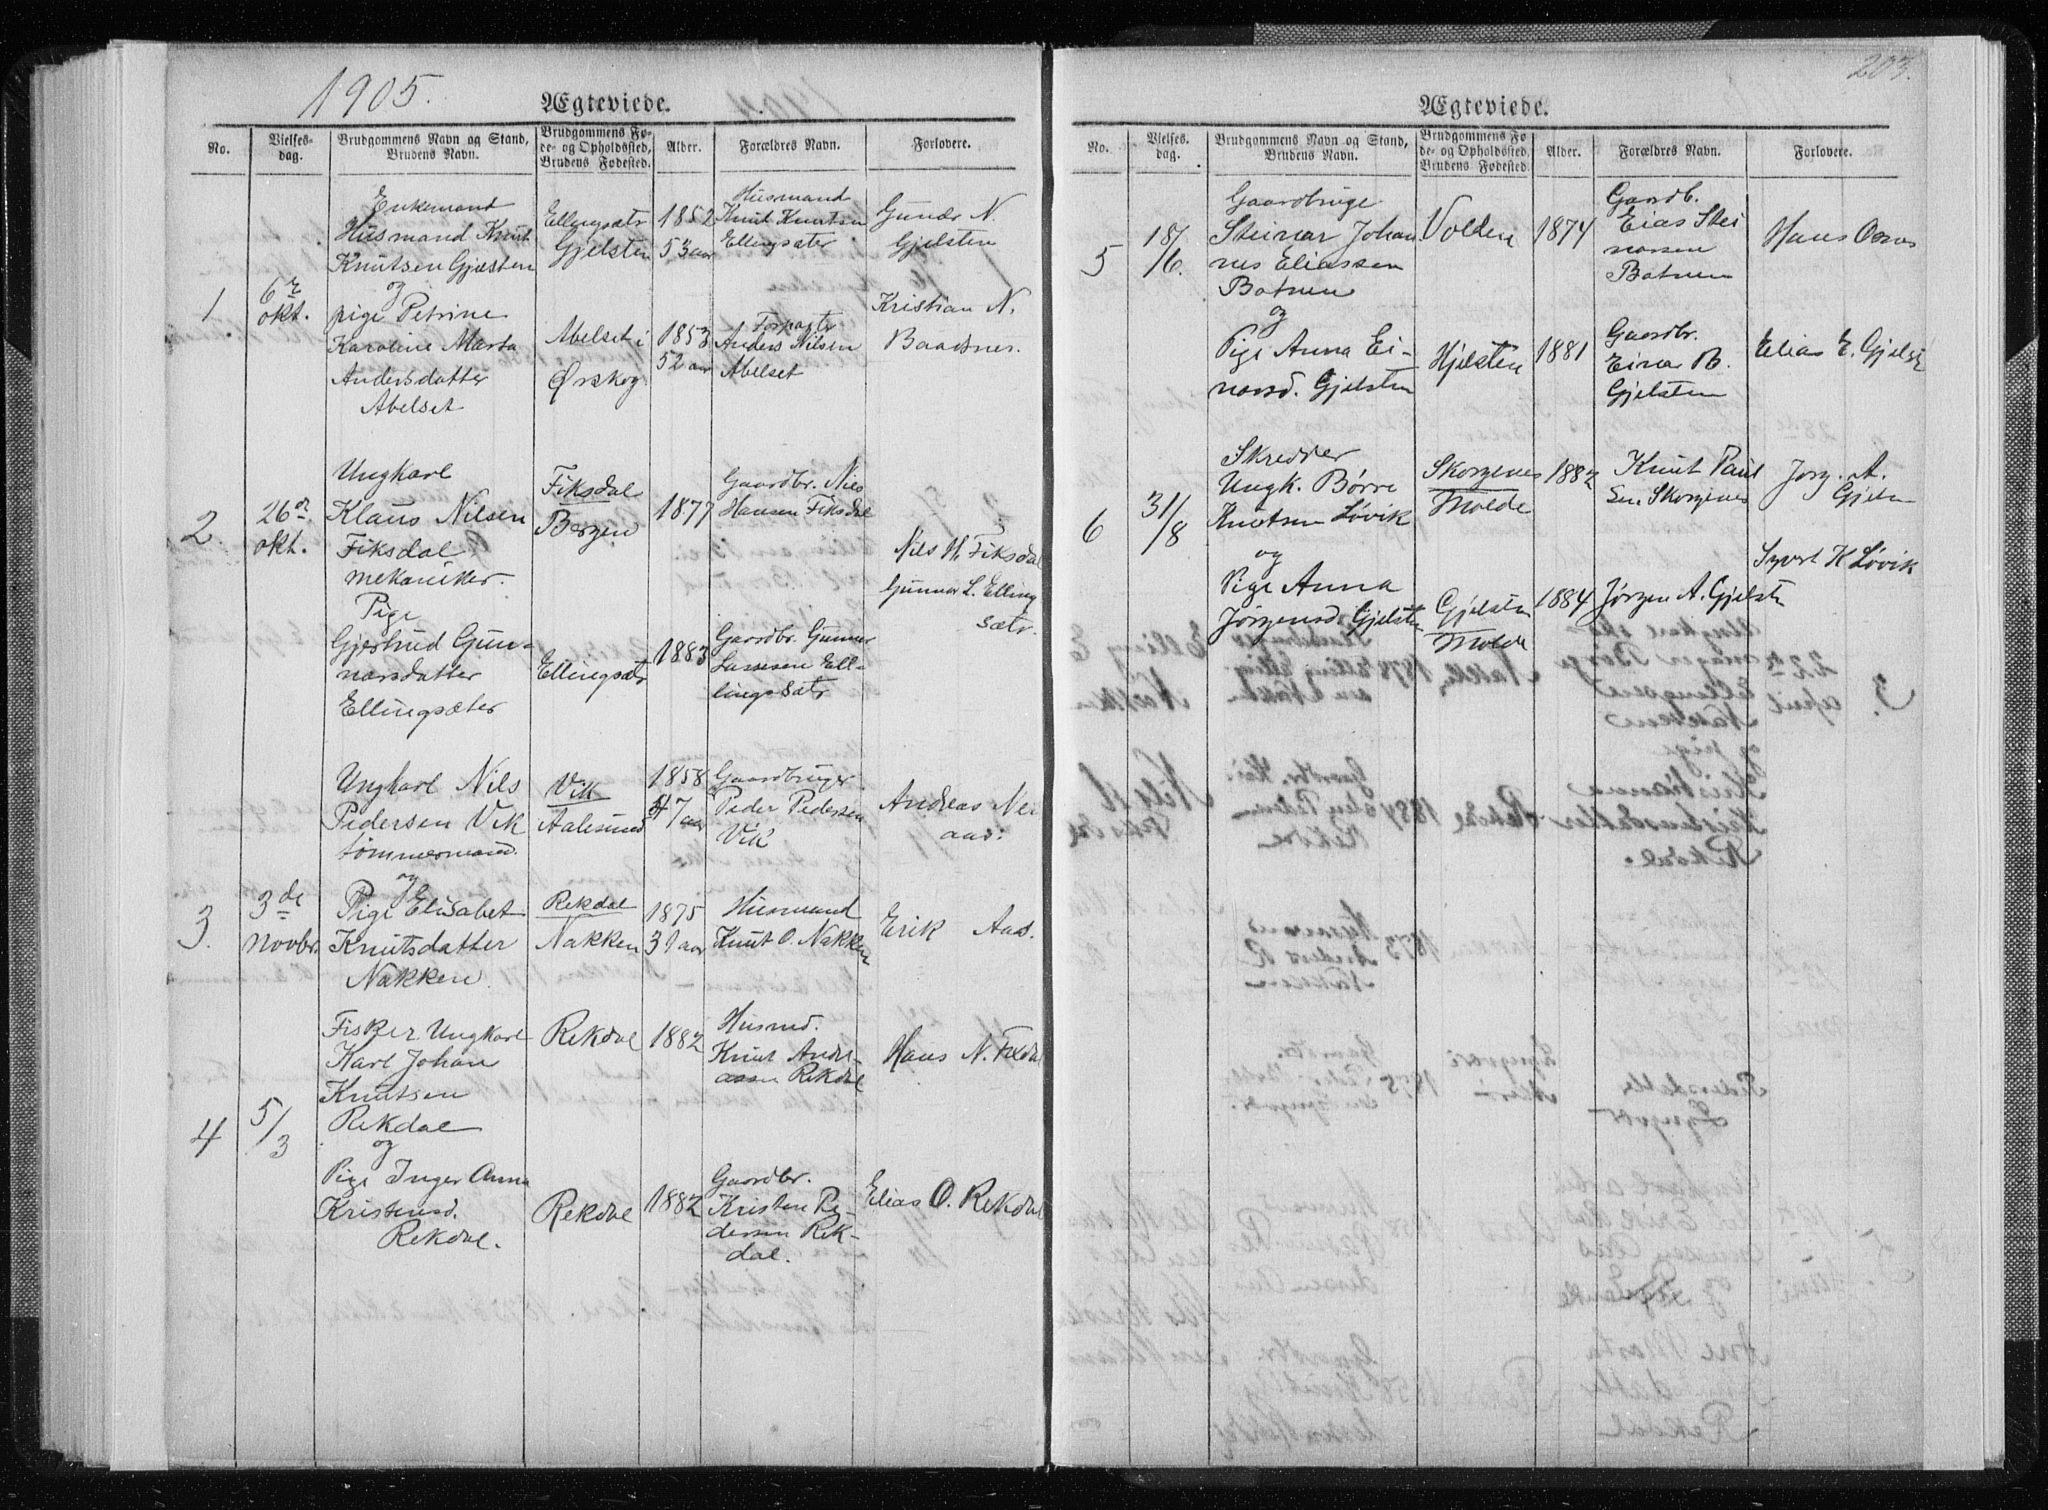 1905.
Ægteviede.
No.
Vielses-
dag.
Brudgommens Navn og Stand,
Brudens Navn.
Brudgommens Fø-
de- og Opholdssted,
Brudens Fødested.
Alder.
Forældres Navn.
Forlovere.
1
6te
okt.
Enkemand
Husmand Knut
Knutsen Gjelsten
og
pige Petrine
Karoline Marta
Andersdatter
Abelset
Ellingsætr
Gjelsten
Abelset i
Ørskog
1852
53 aar
1853
52 aar
Husmand
Knut Knutsen
Ellingsæter
Forpagtr
Anders Nilsen
Abelset
Gunder N.
Gjelsten
Kristian N.
Baadsnes.
2
26de
okt.
Ungkarl
Klaus Nilsen
Fiksdal
mekaniker.
Pige
Gjertrud Gun-
narsdatter
Ellingsæter
Fiksdal
Bergen
Ellingsætr
1877
1883
Gaardbr. Nils
Hansen Fiksdal
Gaardbr. Gunnar
Larsen El-
lingssætr
Nils H. Fiksdal
Gunnar L. Elling
sætr.
3.
3de
novbr.
Ungkarl Nils
Pedersen Vik
tømmermand.
og
Pige Elisabet
Knutsdatter
Nakken
Vik
Aalesund
Rekdal
Nakken
1858
47 aar
1875
31 aar
Gaardbruger
Peder Pedersen
Vik
Husmand
Knut O. Nakken
Andreas Nei
aas:
Erik Aas.
4
5/3
Fisker Ungkarl
Karl Johan
Knutsen
Rekdal
og
Pige Inger Anna
Kristensd.
Rekdal.
Rekdal
Rekdal
1882
1882
Husmd.
Knut Andre-
assen Rekdal
Gaardbr.
Kristen Pe-
dersen Rek-
dal.
Hans N. Fixdal
Elias O. Rekdal
203.
Ægteviede.
No.
Vielses-
dag.
Brudgommens Navn og Stand,
Brudens Navn.
Brudgommens Fø
de- og Opholdssted,
Brudens Fødested.
Alder.
Forældres Navn.
Forlovere.
5
18/6.
Gaardbruge
Steinar Johan
nes Eliassen
Botnen
og
Pige Anna Ei-
narsd. Gjelsten
Volden
Hjelsten
1874
1881
Gaardb.
Elias Stei
narsen
Botnen
Gaardbr.
Einar B.
Gjelsten
Hans Osnes
Elias E. Gjelst
6
31/8
Skredder
Ungk. Børre
Knutsen Løvik
og
Pige Anna
Jørgensd. Gjelsten
Skorgenes
Molde
Gjelsten
Molde
1882
1884
Knut Paul
sen Skorgenes
Jørgen A. Gjelsten
Jørg. A.
Gjelsn
Syvert K Løvik